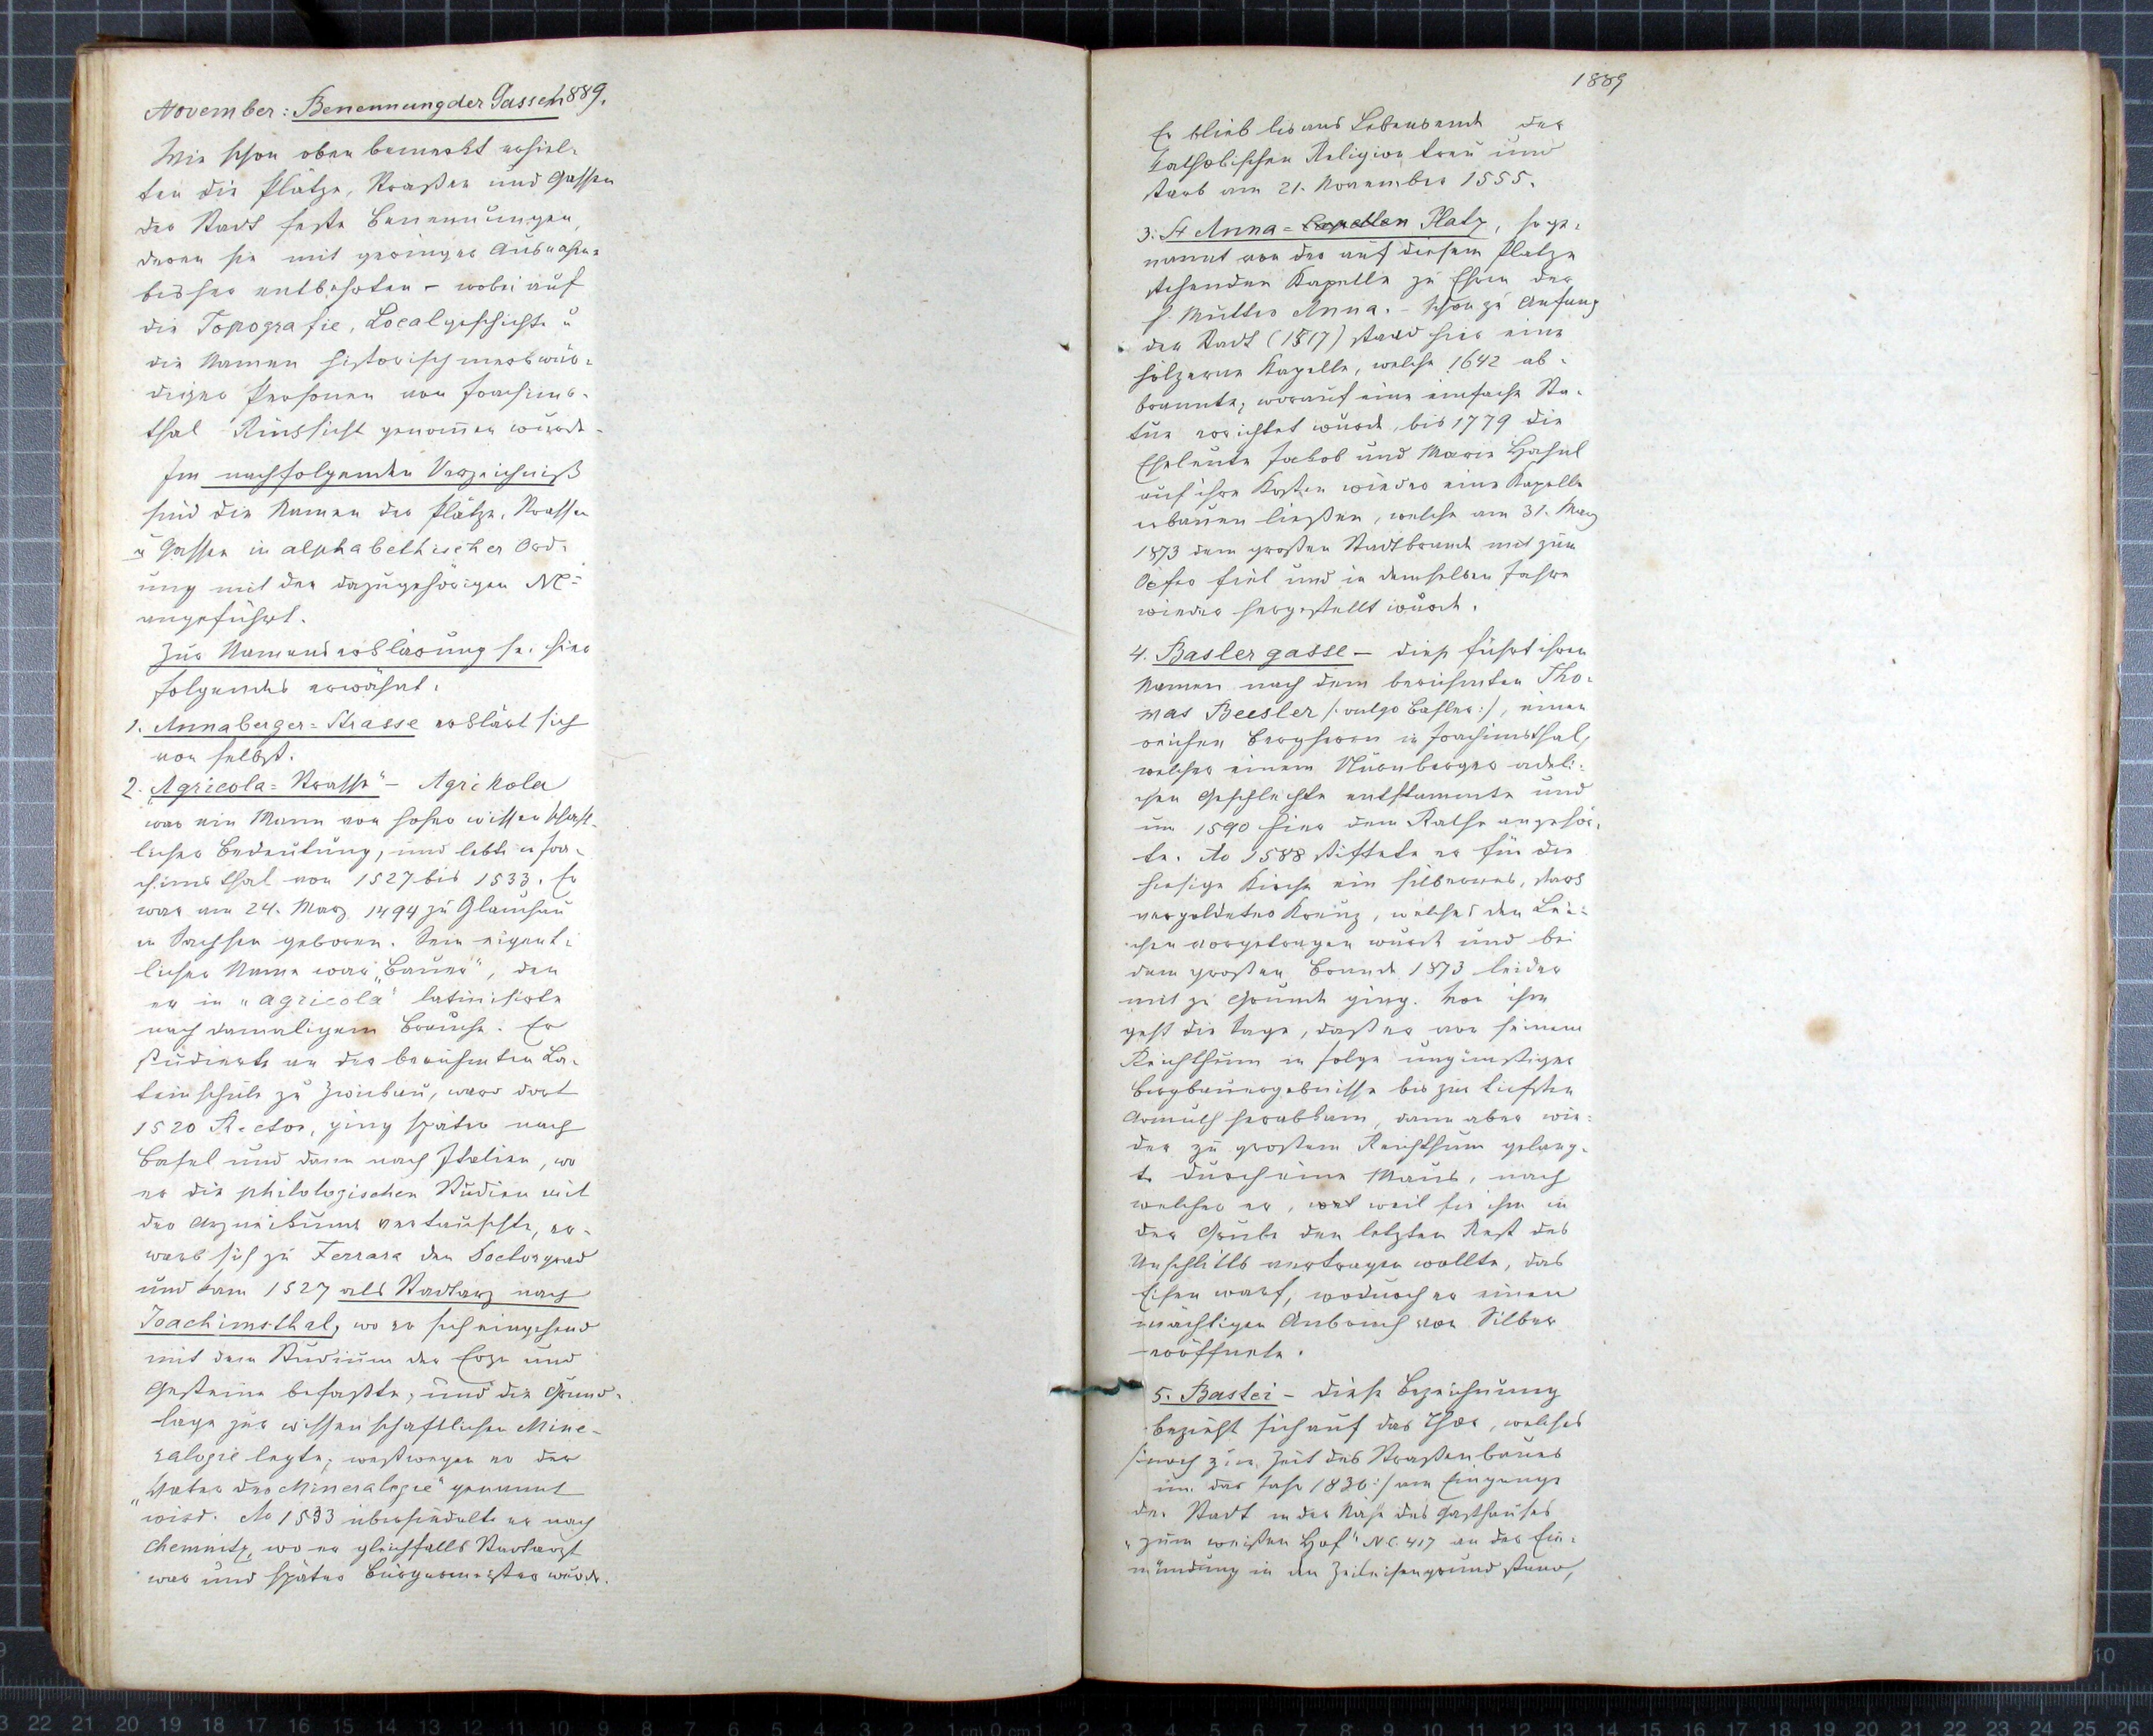 November: Benennung der Gassen 1889.
Wie schon oben bemerkt erhiel-
ten die Plätze, Straßen und Gassen
der Stadt feste Benennungen,
deren sie mit geringer Ausnahme
bisher entbehrten – wobei auf
die Topografie, Localgeschichte u
die Namen historisch merkwür-
diger Personen von Joachims-
thal Rücksicht genomen wurde.
Im nachfolgenden Verzeichniß
sind die Namen der Plätze, Strassen
u Gassen in alphabethischer Ord-
ung mit den dazugehörigen NC:
angeführt.
Zur Namenserklärung sei hier
folgendes erwähnt:
1. Annaberger=Strasse erklärt sich
von selbst.
2. „Agricola=Strasse" – Agrikola
war ein Mann von hoher wissenschaft-
licher Bedeutung, und lebte in Joa-
chimsthal von 1527 bis 1533. Er
war am 24. März 1494 zu Glauchau
in Sachsen geboren. Sein eigent-
licher Name war „Bauer", den
er in „Agricola" latinisirte
nach damaligem Brauche. Er
studierte an der berühmten La-
teinschule zu Zwickau, war dort
1520 Rector, ging später nach
Basel und dann nach Italien, wo
er die philologischen Studien mit
der Arzneikunde vertauschte, er-
warb sich zu Ferrara den Doctorgrad
und kam 1527 als Stadtarz nach
Joachimsthal, wo er sich eingehend
mit dem Studium der Erze und
Gesteine befaßte, und die Grund-
lage zur wissenschaftlichen Mine-
ralogie legte, weßwegen er der
„Vater der Mineralogie" genannt
wird. Ao 1533 übersiedelte er nach
Chemnitz, wo er gleichfalls Stadtarzt
war und später Bürgermeister wurde.
1889
Er blieb bis ans Lebensende der
katholischen Religion treu und
starb am 21. November 1555.
3. St Anna=Capellen Platz, so ge-
nannt von der auf diesem Platze
stehenden Kapelle zu Ehren der
h. Mutter Anna. – Schon zu Anfang
der Stadt (1517) stand hier eine
hölzerne Kapelle, welche 1642 ab-
brannte, worauf eine einfache Sta-
tue errichtet wurde, bis 1779 die
Eheleute Jakob und Marie Hahnl
auf ihre Kosten wieder eine Kapelle
erbauen ließen, welche am 31. März
1873 dem großen Stadtbrande mit zum
Opfer fiel und in demselben Jahre
wieder hergestellt wurde.
4. Baslergasse – diese führt ihren
Namen nach dem berühmten Tho-
mas Beesler /: vulgo Basler :/, einem
reichen Bergherrn in Joachimsthal,
welcher einem Nürnberger adeli-
chen Geschlechte entstammte und
um 1590 hier dem Rathe angehör-
te. Ao 1588 stiftete er für die
hiesige Kirche ein silbernes, stark
vergoldetes Kreuz, welches den Lei-
chen vorgetragen wurde und bei
dem großen Brande 1873 leider
mit zu Grunde ging. Von ihm
geht die Sage, daß er von seinem
Reichthum in Folge ungünstiger
Bergbauergebnisse bis zur tiefsten
Armuth herabkam, dann aber wie-
der zu großem Reichthum gelang-
te durch eine Maus, nach
welcher er, weil sie ihm in
der Grube den letzten Rest des
Unschlitts vertragen wollte, das
Eisen warf, wodurch er einen
mächtigen Anbruch von Silber
eröffnete.
5. Bastei – diese Bezeichnung
bezieht sich auf das Thor, welches
/: noch zur Zeit des Straßenbaues
um das Jahr 1830 :/ am Eingange
der Stadt in der Nähe des Gasthauses
„zum weißen Hof" NC. 417 an der Ein-
mündung in den Zeileisengrund stand,